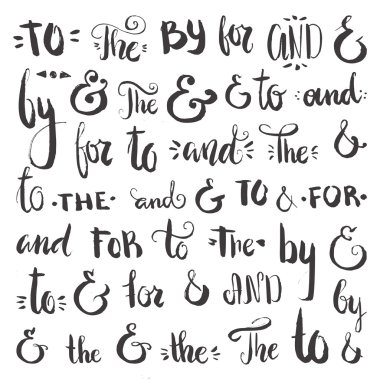 TO The BY for AND &
by & The & & to and
for to and The &
to THE and & TO & FOR
and FOR to The by &
to & for & AND by
& the & the The to &